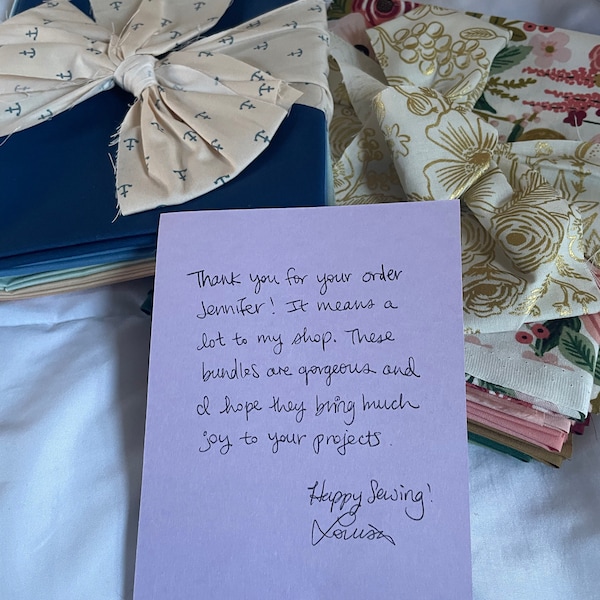 Thank you for your order
Jennifer! It means a
lot to my shop. These
bundles are gorgeous and
I hope they bring much
joy to your projects.
Happy Sewing!
Louisa